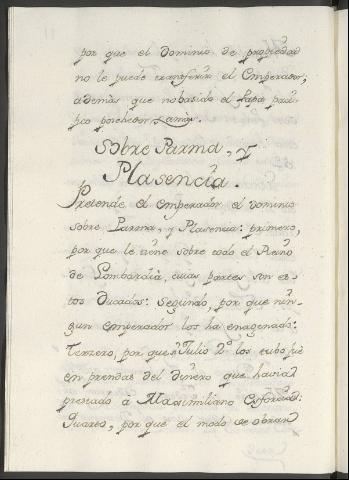 por que el Dominio de propiedad
no le puede transferir el Emperador,
ademàs que no ha sido el Papa pacifico
posehedor jamàs.
Sobre Parma, y
Plasencia.
Pretende el emperador el dominio
sobre Parma, y Plasencia: primero,
por que le tiene sobre todo el Reino
de Lombardia, cuias partes son es-
tos Ducados: segundo, por que nin-
gun emperador los ha enagenado:
Terzero, por que Julio 2º los tubo
en prendas del dinero que havia
prestado à Maximiliano Esforcia:
Quarto, por que el modo de obrar